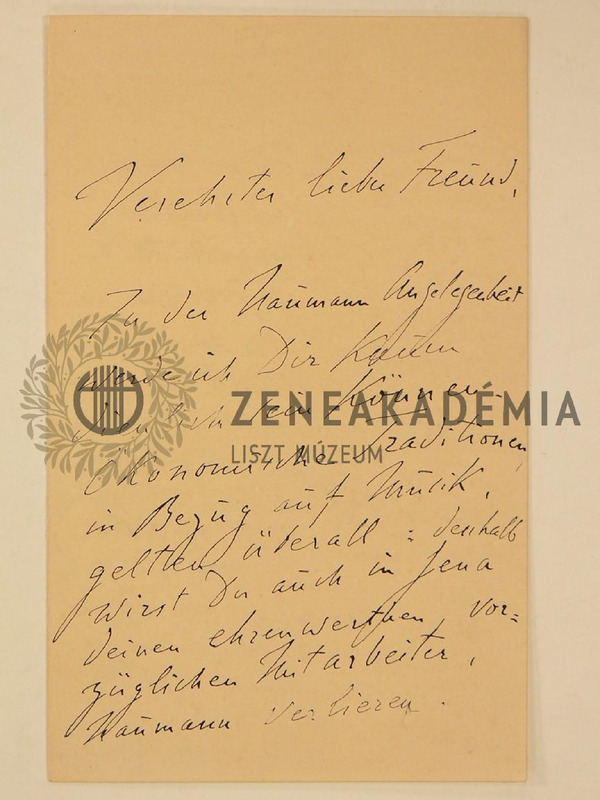 Verehrter lieber Freund,
In der Naumann Angelegenheit
werde ich Dir kaum
dienlich sein können.
ZENEAKADÉMIA
LISZT MÚZEUM
Ökonomische Traditionen,
in Bezug auf Musik,
gelten überall: deshalb
wirst Du auch in Jena
deinen ehrenwerthen vor=
züglichen Mitarbeiter,
Naumann verlieren.